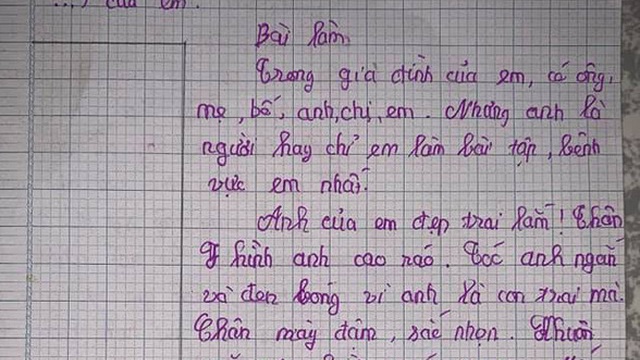 của em.
Bài làm
Trong gia đình của em, có ông,
mẹ, bố, anh, chị, em. Nhưng anh là
người hay chỉ em làm bài tập, bênh
vực em nhất.
Anh của em đẹp trai lắm! Thân
hình anh cao ráo. Tóc anh ngắn
và đen bóng vì anh là con trai mà.
Chân mày đậm, sắc nhọn. Khuôn